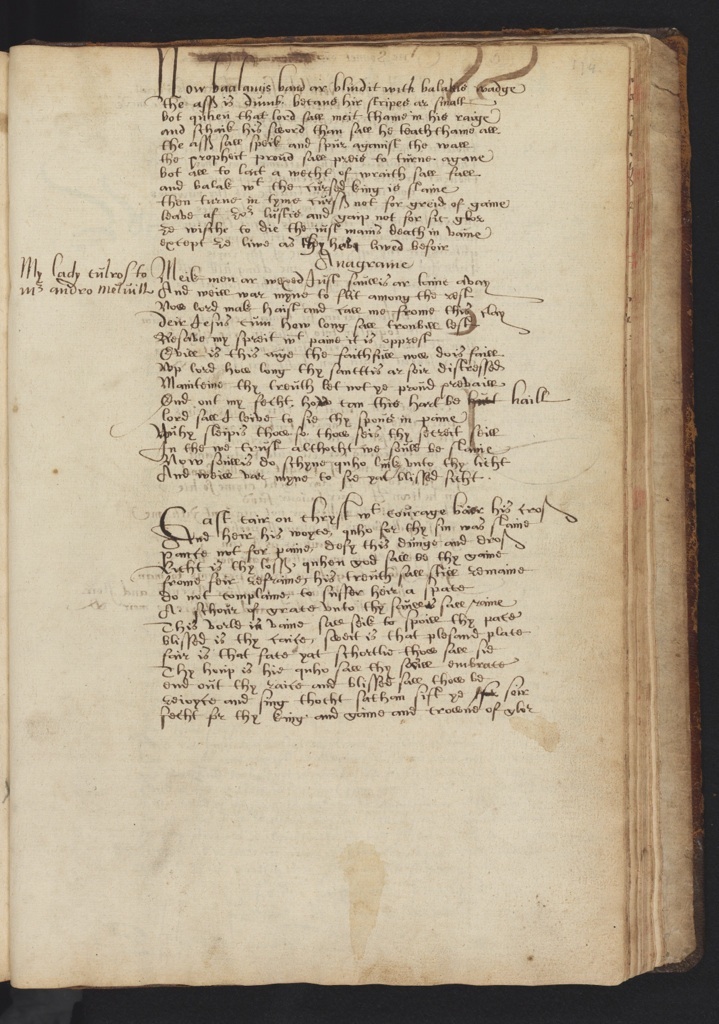 Now baalamis band ar blindit with balakis wadge
the ass is dumb becaus hir stripes ar small
bot quhen that lord sall meit thame in his raige
and schaik his sword than sall he leath thame all
the ass sall speik and spur aganist the wall
the propheit proud sall preis to turne agane
bot all to lait a wecht of wraith sall fall
and balak wt the cursed king is slaine
then turne in tyme curss not for greid of gaine
leave af yor lustis and gaip not for sic glor
ye wische to die the iust mans death in vaine
except ye live as they have lived befoir
Anagrame
My lady culros to
mr andro meluill
Meik men ar vexed Iust saullis ar taine avay
And weill war myne to flit among the rest
Now lord mak haist and call me frome this clay
Deir Jesus cum how long sall troubill lest
Resave my spreit wt paine it is opprest
Evill is this aige the faithfull now dois faill
Wp lord how long thy sanctis ar soir distressed
Mainteine thy treuth let not ye proud prevaill
Ond out my fecht how can this hart be haill
lord sall I leive to sie thy spous in paine
Vyhy sleipis thow so thow seis thy secreit
In the we trust althocht we sould be slaine
Now saullis do schyne quho luik unto thy licht
And weill var myne to sie yat blissed sicht
Cast cair on chryst wt courage baer his cross
And heir his woyce quho for thy sin was slaine
pance not for paine defy this dunge and dross
Richt is thy loss quhen god sall be thy gaine
frome feir refraine his treuth sall still remaine
do not complaine to suffer heir a space
A schour of grace unto thy saull sall raine
This vorld in vaine sall seik to spoill thy pace
blissed is thy raice sweit is that plesand place
fair is that face yat schortlie thow sall sie
Thy houp is hie quho sall thy saull embrace
end out thy raice and blissed sall thow be
reioyce and sing thocht sathan sift ye soir
fecht for thy king and gaine and crowne of glor